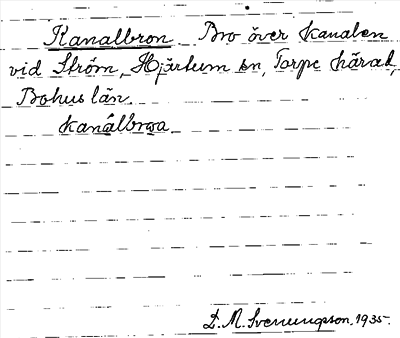 Kanalbron Bro över kanalen
vid Ström, Hjärtum sn, Torpe härad,
Bohus län.
kanálbroa.
D. M. Svenungsson, 1935.